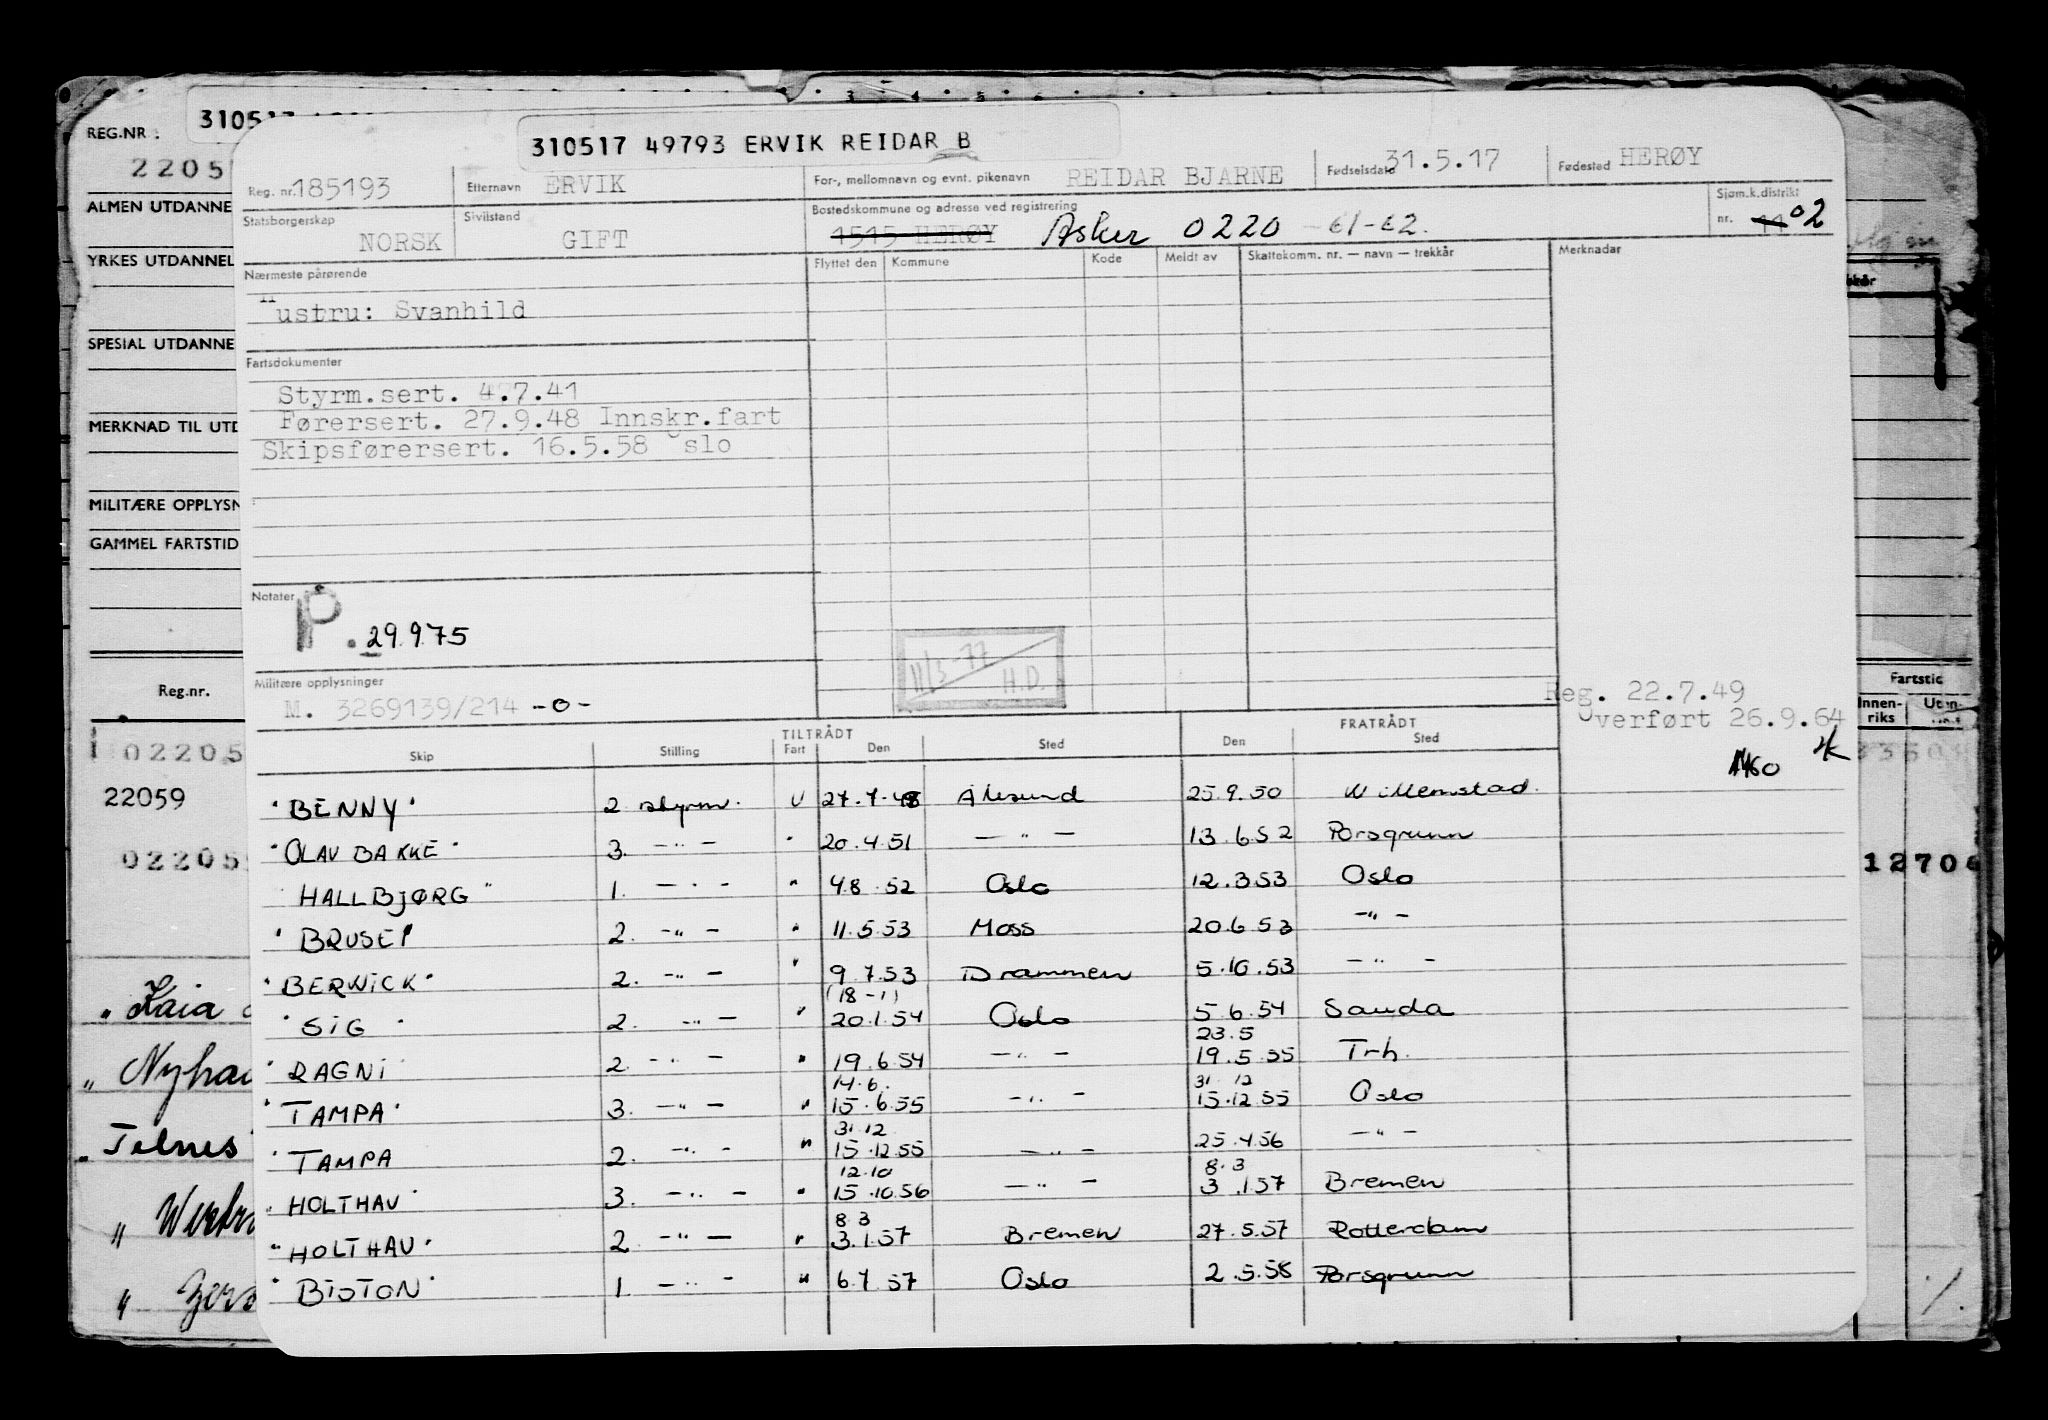 REG.NR :
310517
310517 49793 ERVIK REIDAR B
2205
Reg. nr. 185193 Etternavn ERVIK For-, mellomnavn og evnt. pikenavn REIDAR BJARNE Fødselsdato 31.5.17 Fødested HERØY
ALMEN UTDANNE
Statsborgerskap NORSK Sivilstand GIFT Bostedskommune og adresse ved registrering 1515 HERØY Asker 0220 -61-62. Sjøm.k.distrikt nr. 11 02
YRKES UTDANNEL
Nærmeste pårørende Flyttet den Kommune Kode Meldt av Skattekomm. nr. — navn — trekkår Merknadar
Hustru: Svanhild
SPESIAL UTDANNE
Fartsdokumenter
Styrm.sert. 4.7.41
Førersert. 27.9.48 Innskr.fart
MERKNAD TIL UTD
Skipsførersert. 16.5.58 Oslo
MILITÆRE OPPLYSN
GAMMEL FARTSTID
Notater
P. 29.9.75
11/3-77 H.D.
Reg.nr.
Militære opplysninger
M. 3269139/214 -0-
Fartstid
Innen-riks Uten-
Reg. 22.7.49
Overført 26.9.64
TILTRÅDT FRATRÅDT
Skip Stilling Fart Den Sted Den Sted
02205
22059
02205
12706
"BENNY" 2 styrm. U 27.7.48 Ålesund 25.9.50 Willemstad
"OLAV BAKKE" 3. -"- " 20.4.51 -"- 13.6.52 Porsgrunn
"HALLBJØRG" 1. -"- " 4.8.52 Oslo 12.3.53 Oslo
"BRUSE" 2. -"- " 11.5.53 Moss 20.6.53 -"-
"BERWICK" 2. -"- " 9.7.53 Drammen 5.10.53 -"-
(18-1)
"SIG" 2. -"- " 20.1.54 Oslo 5.6.54 Sauda
23.5
"RAGNI" 2. -"- " 19.6.54 -"- 19.5.55 Trh.
14.6. 31.12
"TAMPA" 3. -"- " 15.6.55 -"- 15.12.55 Oslo
31.12
"TAMPA 2. -"- " 15.12.55 -"- 25.4.56 -"-
12.10 8.3
"HOLTHAV" 3. -"- " 15.10.56 -"- 3.1.57 Bremen
8.3
"HOLTHAV" 2. -"- " 3.1.57 Bremen 27.5.57 Rotterdam
"BISTON" 1. -"- " 6.7.57 Oslo 2.5.58 Porsgrunn
"Kaia
" Nyhav
"Telnes"
"
"